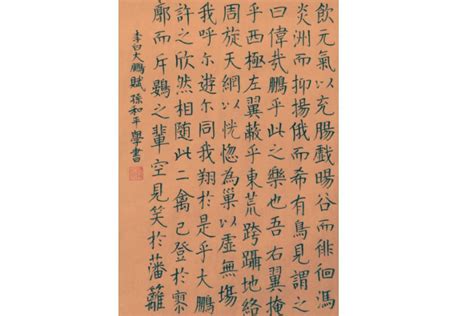 飲元氣以充腸戲暘谷而徘徊馮
炎洲而抑揚俄而希有鳥見謂之
曰偉哉鵬乎此之樂也吾右翼掩
乎西極左翼蔽乎東荒跨躡地絡
周旋天網以恍惚為巢以虛無塲
我呼尔遊尔同我翔於是乎大鵬
許之欣然相隨此二禽已登於寥
廓而斥鷃之輩空見笑於藩籬
李白大鵬賦孫和平學書